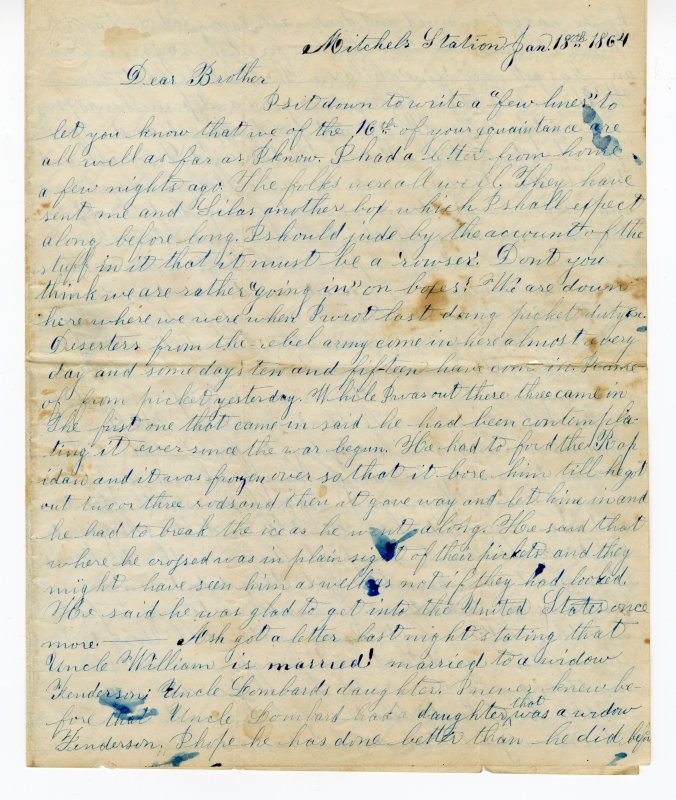 Mitchels Station Jan. 18th 1864
Dear Brother
I sit down to write a "few lines" to
let you know that we of the 16th of your quaintance are
all well as far as I know. I had a letter from home
a few nights ago. The folks were all well. They have
sent me and Silas another box which I shall expect
along before long. I should jude by the account of the
stuff in it that it must be a 'rowser'. Dont you
think we are rather "going in" on boxes? We are down
here where we were when I wrot last doing picket duty.
Deserters from the rebel army come in here almost every
day and some days ten and fifteen have com in. I came
of from picket yesterday. While I was out there three came in
The first one that came in said he had been contempla-
ting it ever since the war begun. He had to ford the Rap
idan and it was frozen over so that it bore him till he got
out two or three rods and then it gave way and let him in and
he had to break the ice as he went along. He said that
where he crossed was in plain sight of their pickets and they
might have seen him as well as not if they had looked.
He said he was glad to get into the United States once
more. —— Ash got a letter last night stating that
Uncle William is married! married to a widow
Fenderson; Uncle Lombards daughter. I never knew be-
fore that Uncle Lombard had a daughter that was a widow
Fenderson, I hope he has done better than he did before